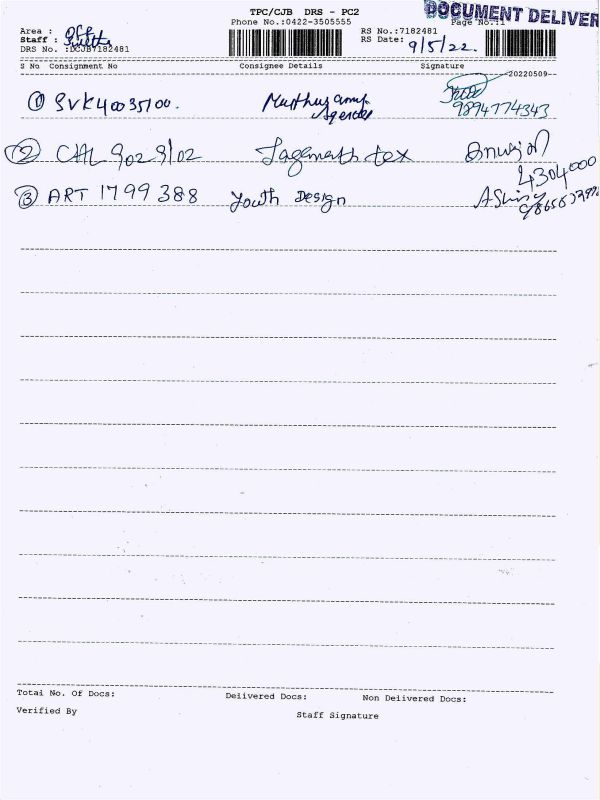 TPC/CJB DRS - PC2
DOCUMENT DELIVER
Phone No.:0422-3505555
Page No.:1
Area :
RS No.:7182481
Staff :
RS Date: 9/5/22.
DRS No. :DCJB7182481
S No Consignment No Consignee Details Signature
20220509
① SVK40035100. Muthuswamy Agencies
9894774343
② CHL 90289102 Jagannath tex
4304000
③ ART 1799388 Youth Design
Total No. Of Docs: Delivered Docs: Non Delivered Docs:
Verified By Staff Signature